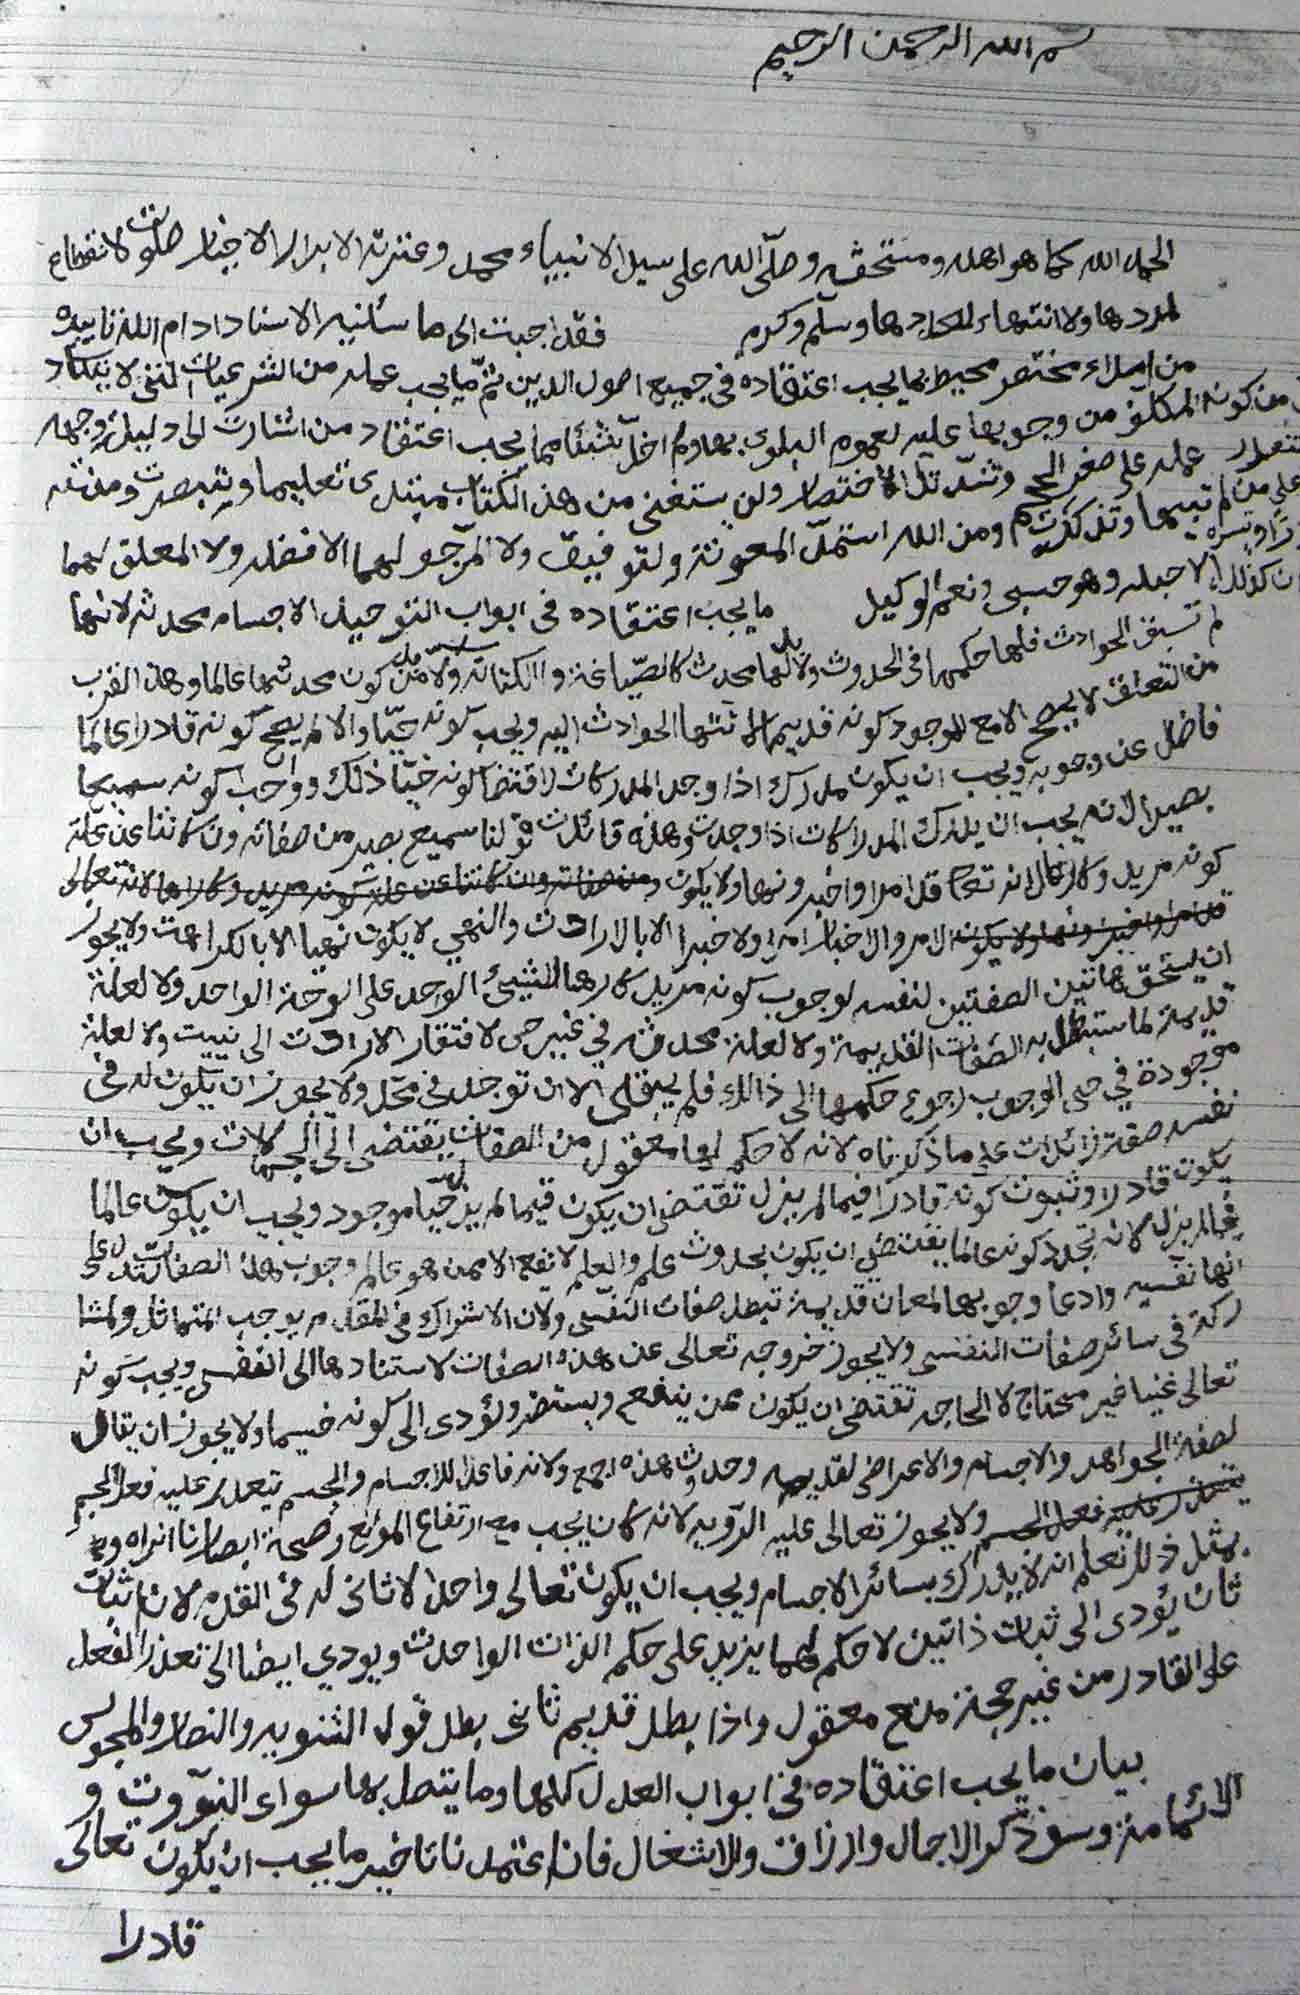 بسم الله الرحمن الرحيم
الحمد الله كما هو اهله ومستحقه وصلّى الله على سيد الانبياء محمد وعترته الابرار الاخيار صلوت لا نقطاع
لمددها ولا انتهاء لعددها وسلّم وكرم فقد اجبت الى ما سألنيه الاستاد ادام الله تاييده
من املاء مختصر محيط بما يجب اعتقاده فى جميع اصول الدين ثمّ ما يجب عمله من الشرعيات التى لا يكاد
المكلّف من وجوبها عليه لعموم البلوى بها ولم اخلّ شيئا مما يجب اعتقاد من اشارت الى دليله وجهه
عمله على صغر الحجم وشدّت الاختصار ولن يستغنى من هذ الكتاب مبتدى تعليما وتبصرت ومنته
تنبيها وتذكرت ومن الله استمدّ المعونة ولتوفيق ولا المرّجو لهما الا فضله ولا المعلق بهما
الا حبله وهو حسبى ونعم الوكيل ما يجب اعتقاده فى ابواب التوحيد الاجسام محدثه لانها
لم تسبق الحوادث فلها حكمها فى الحدوث ولا بدّ لها محدث كالصّياغة والكتابة ولا بدّ من كون محدثها عالما وهذا الضرب
من التعلق لا يصح الا مع الموجود كونه قديما لانتهاء الحوادث اليه ويجب كونه حيّا والا لم يصح كونه قادرا عالما
فاضل عن وجوبه ويجب ان يكون مدرك اذا وجد المدركات لاقتضا كونه حيّا ذلك وواجب كونه سميعا
بصيرا لانه يجب ان يدرك المدركات اذا وجدت وهذه قائدت قولنا سميع بصير من صفاته وان كانتا عن علة
كونه مريد وكارها لانه تعالى قد امر واخبر ونها ولا يكون من صفاته وان كانتا عن علة كونه مريد وكارها لانه تعالى
قد امر واخبر ونها ولا يكون الامر والاخبار امرا ولا خبرا الا بالارادت والنهي لا يكون نهيا الا بالكراهت ولا يجوز
ان يستحق هاتين الصفتين لنفسه لوجوب كونه مريد كارها للشيئ الواحد على الوجة الواحد ولا لعلة
قديمة لما سنبطل به الصفات القديمة ولا لعلة محدثه في غير حى لافتقار الارادت الى نييت ولا لعلة
موجودة في حى لوجوب رجوع حكمها الى ذالك فلم يبقى الا ان توجد لا فى محل ولا يجوز ان يكون له فى
نفسه صفة زائدت على ما ذكرناه لانه لا حكم لها معقول من الصفات يقتضى الى الجهالات ويجب ان
يكون قادرا وثبوت كونه قادرا فيما لم يزل تقتضى ان يكون فيما لم يزل حيّا موجود ويجب ان يكون عالما
فيما لم يزل لانه تجدد كونه عالما يقتضى ان يكون بحدوث علم والعلم لا يقع الا ممن هو عالم وجوب هذا الصفات تدل على
انها نفسيه وادعا وجوبها لمعان قديمة تبطل صفات النفسى ولان الاشتراك فى القدم يوجب التماثل ولمشا
ركة فى سائر صفات النفسى ولا يجوز خروجه تعالى عن هذه الصفات لاستنادها الى النفس ويجب كونه
تعالى غنيا غير محتاج لا الحاجه تقتضى ان يكون ممن ينفع ويستضر ويؤدى الى كونه جسيما ولا يجوز ان يقال
لصفة الجواهد والاجسام والاعراض لقديمه وحدوث هذه اجمع ولانه فاعلا للاجسام والجسم يتعدر عليه فعل الجسم
يتعدر عليه فعل الجسم ولا يجوز تعالى عليه الرؤيه لانه كان يجب مع ارتفاع الموانع وصحة ابصارنا ان نراه و
بمثل ذلك تعلم انه لا يدرك بسائر الاجسام ويجب ان يكون تعالى واحدا لا ثانى له فى القدم لان اثبات
ثان يؤدى الى ثبات ذاتين لا حكم لهما يزيد على حكم الذات الواحدت ويودي ايضا الى تعذر الفعل
على القادر من غير جهة منع معقول واذا بطل قديم ثانى بطل قول الثنويه والنصار والمجوس
بيان ما يجب اعتقاده فى ابواب العدل كلها وما يتصل بها سواى النبّوت و
الائمامة وسوف ذكر الاجال والارزاق وللاشغال فان اعتمدنا تاخير ما يجب ان يكون تعالى
قادرا